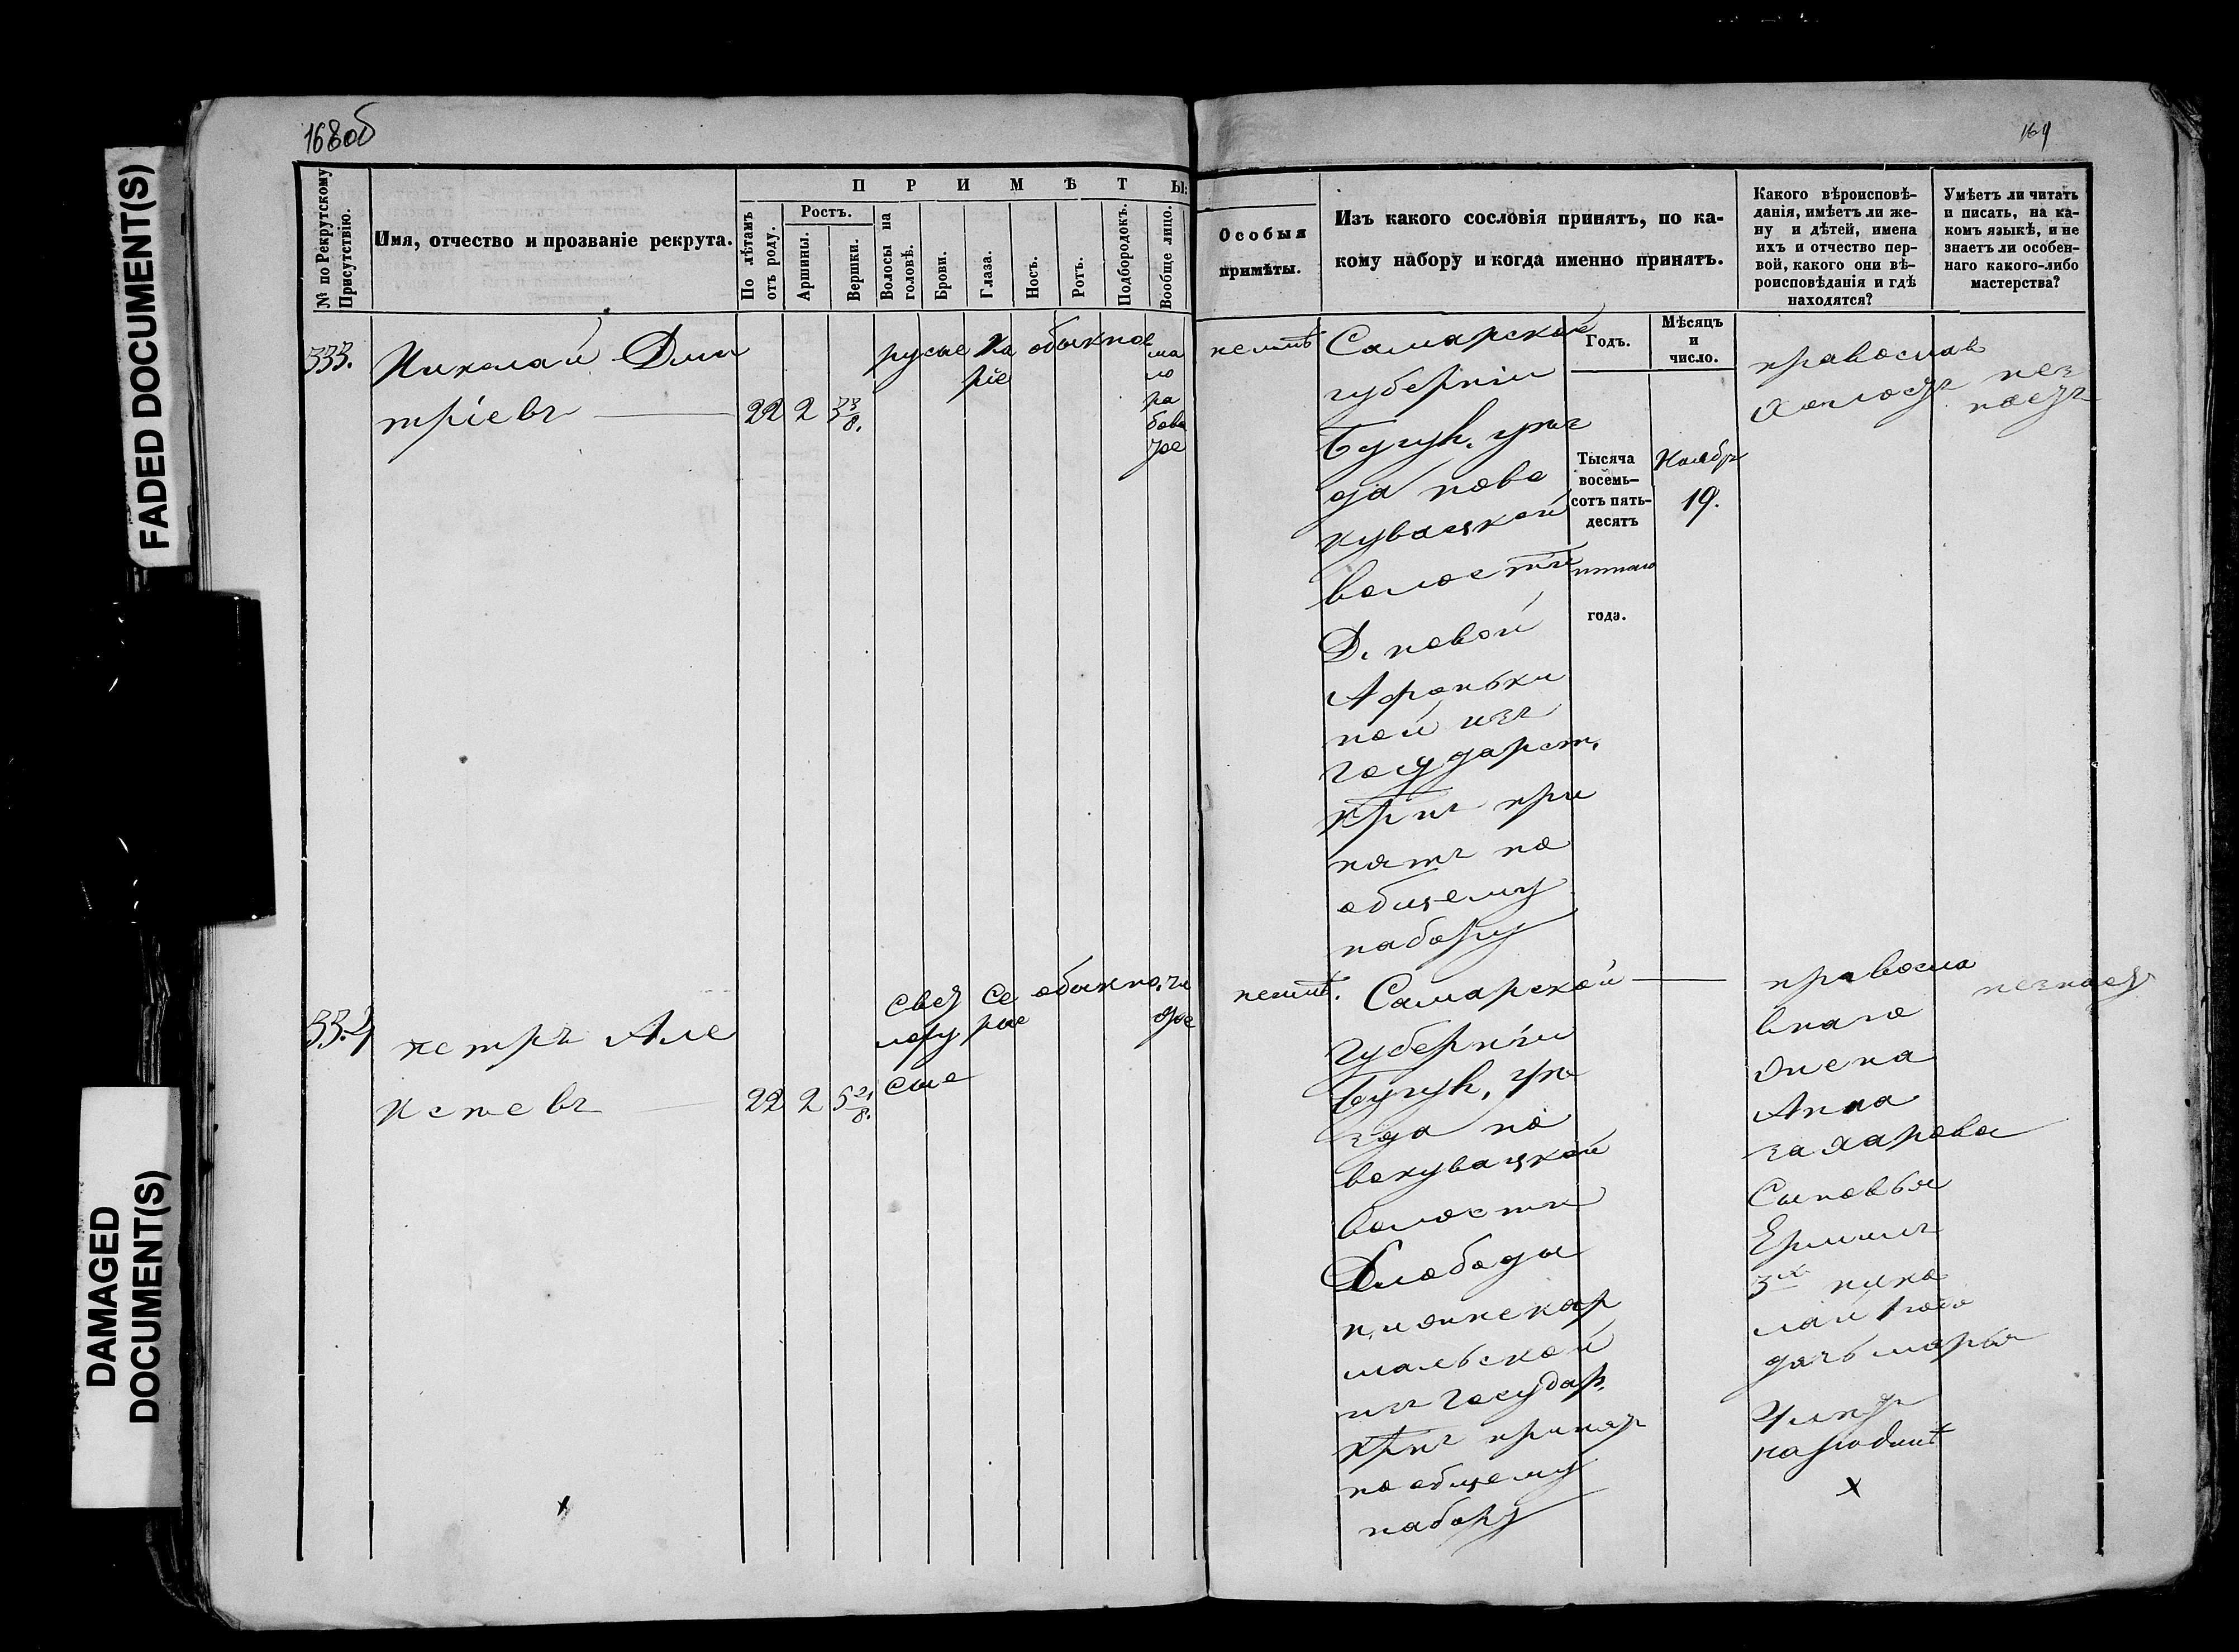 168об
164
FADED DOCUMENT(S)
DAMAGED
DOCUMENT(S)
№ по Рекрутскому
Присутствію.
Имя, отчество и прозваніе рекрута.
ПРИМѢТЫ:
По лѣтамъ
отъ роду.
Ростъ.
Аршины.
Вершки.
Волосы на
головѣ.
Брови.
Глаза.
Носъ.
Ротъ.
Подбородокъ.
Вообще лицо.
Особыя
примѣты.
Изъ какого сословія принятъ, по ка-
кому набору и когда именно принятъ.
Какого вѣроисповѣ-
данія, имѣетъ ли же-
ну и дѣтей, имена
ихъ и отчество пер-
вой, какого они вѣ-
роисповѣданія и гдѣ
находятся?
Умѣетъ ли читать
и писать, на ка-
комъ языкѣ, и не
знаетъ ли особен-
наго какого-либо
мастерства?
Годъ.
Мѣсяцъ
и
число.
333.
Николай Дми
тріевъ
22 2 3 3/8.
русые ка
ріе
обыкнов
ма
ло
ра
бова
тое
неимѣ
Самарской
губерніи
Бугул. уѣз
да ново
кувацкой
волости
Д. новой
Афоньки
ной изъ
государст.
крнъ при
нятъ по
общему
набору
Тысяча
восемь-
сотъ пять-
десятъ
пятаго
года.
Ноябр
19.
православ
холостъ
нез
наетъ
334
петръ Але
ксѣевъ
22 2 5
свет
лору
сые
се
рые
обыкно.
чи
стое
неимѣ.
Самарской
губерніи
Бугул. уѣ
зда но
вокувацкой
волости
Слободы
мальской
изъ государ.
крнъ принятъ
по общему
набору
правосла
внаго
жена
Анна
захарова
Сыновья
Ермилъ
3х нико
лай 1 году
дочь марья
незнает
X
X